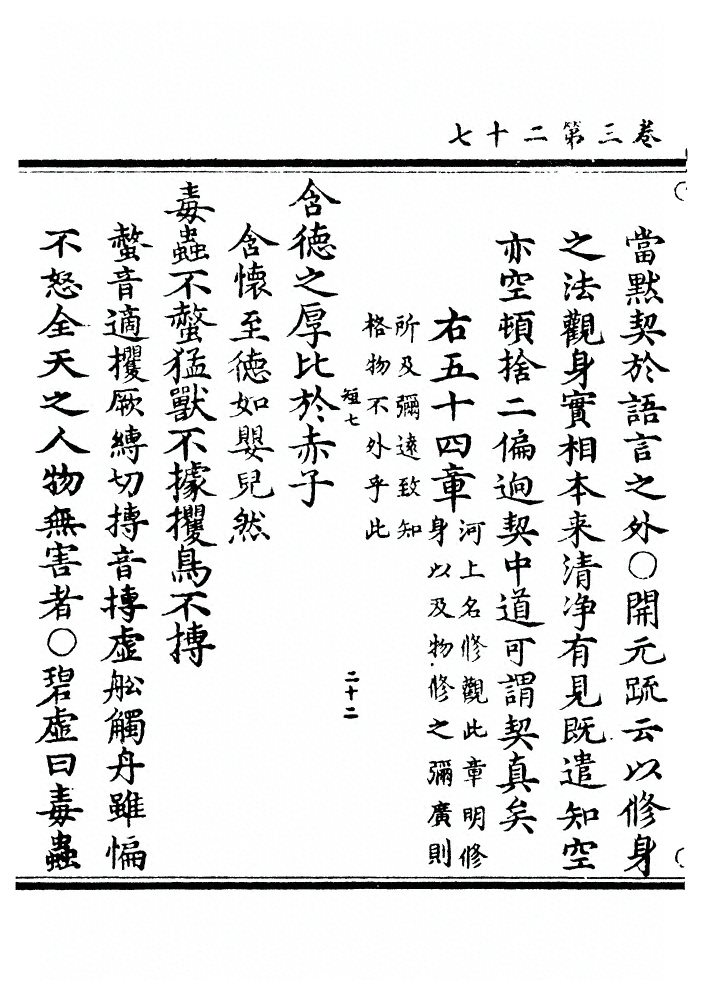 卷三第二十七
當默契於語言之外〇開元疏云以修身
之法觀身實相本来清净有見既遣知空
亦空頓捨二偏逈契中道可謂契真矣
右五十四章河上名修觀此章明修
身以及物修之彌廣則
所及彌遠致知
格物不外乎此
短七
二十二
含德之厚比於赤子
含懷至德如嬰兒然
毒蟲不螫猛獸不據攫鳥不搏
螫音適攫厥縛切搏音摶虛舩觸舟雖惼
不怒全天之人物無害者〇碧虛曰毒蟲